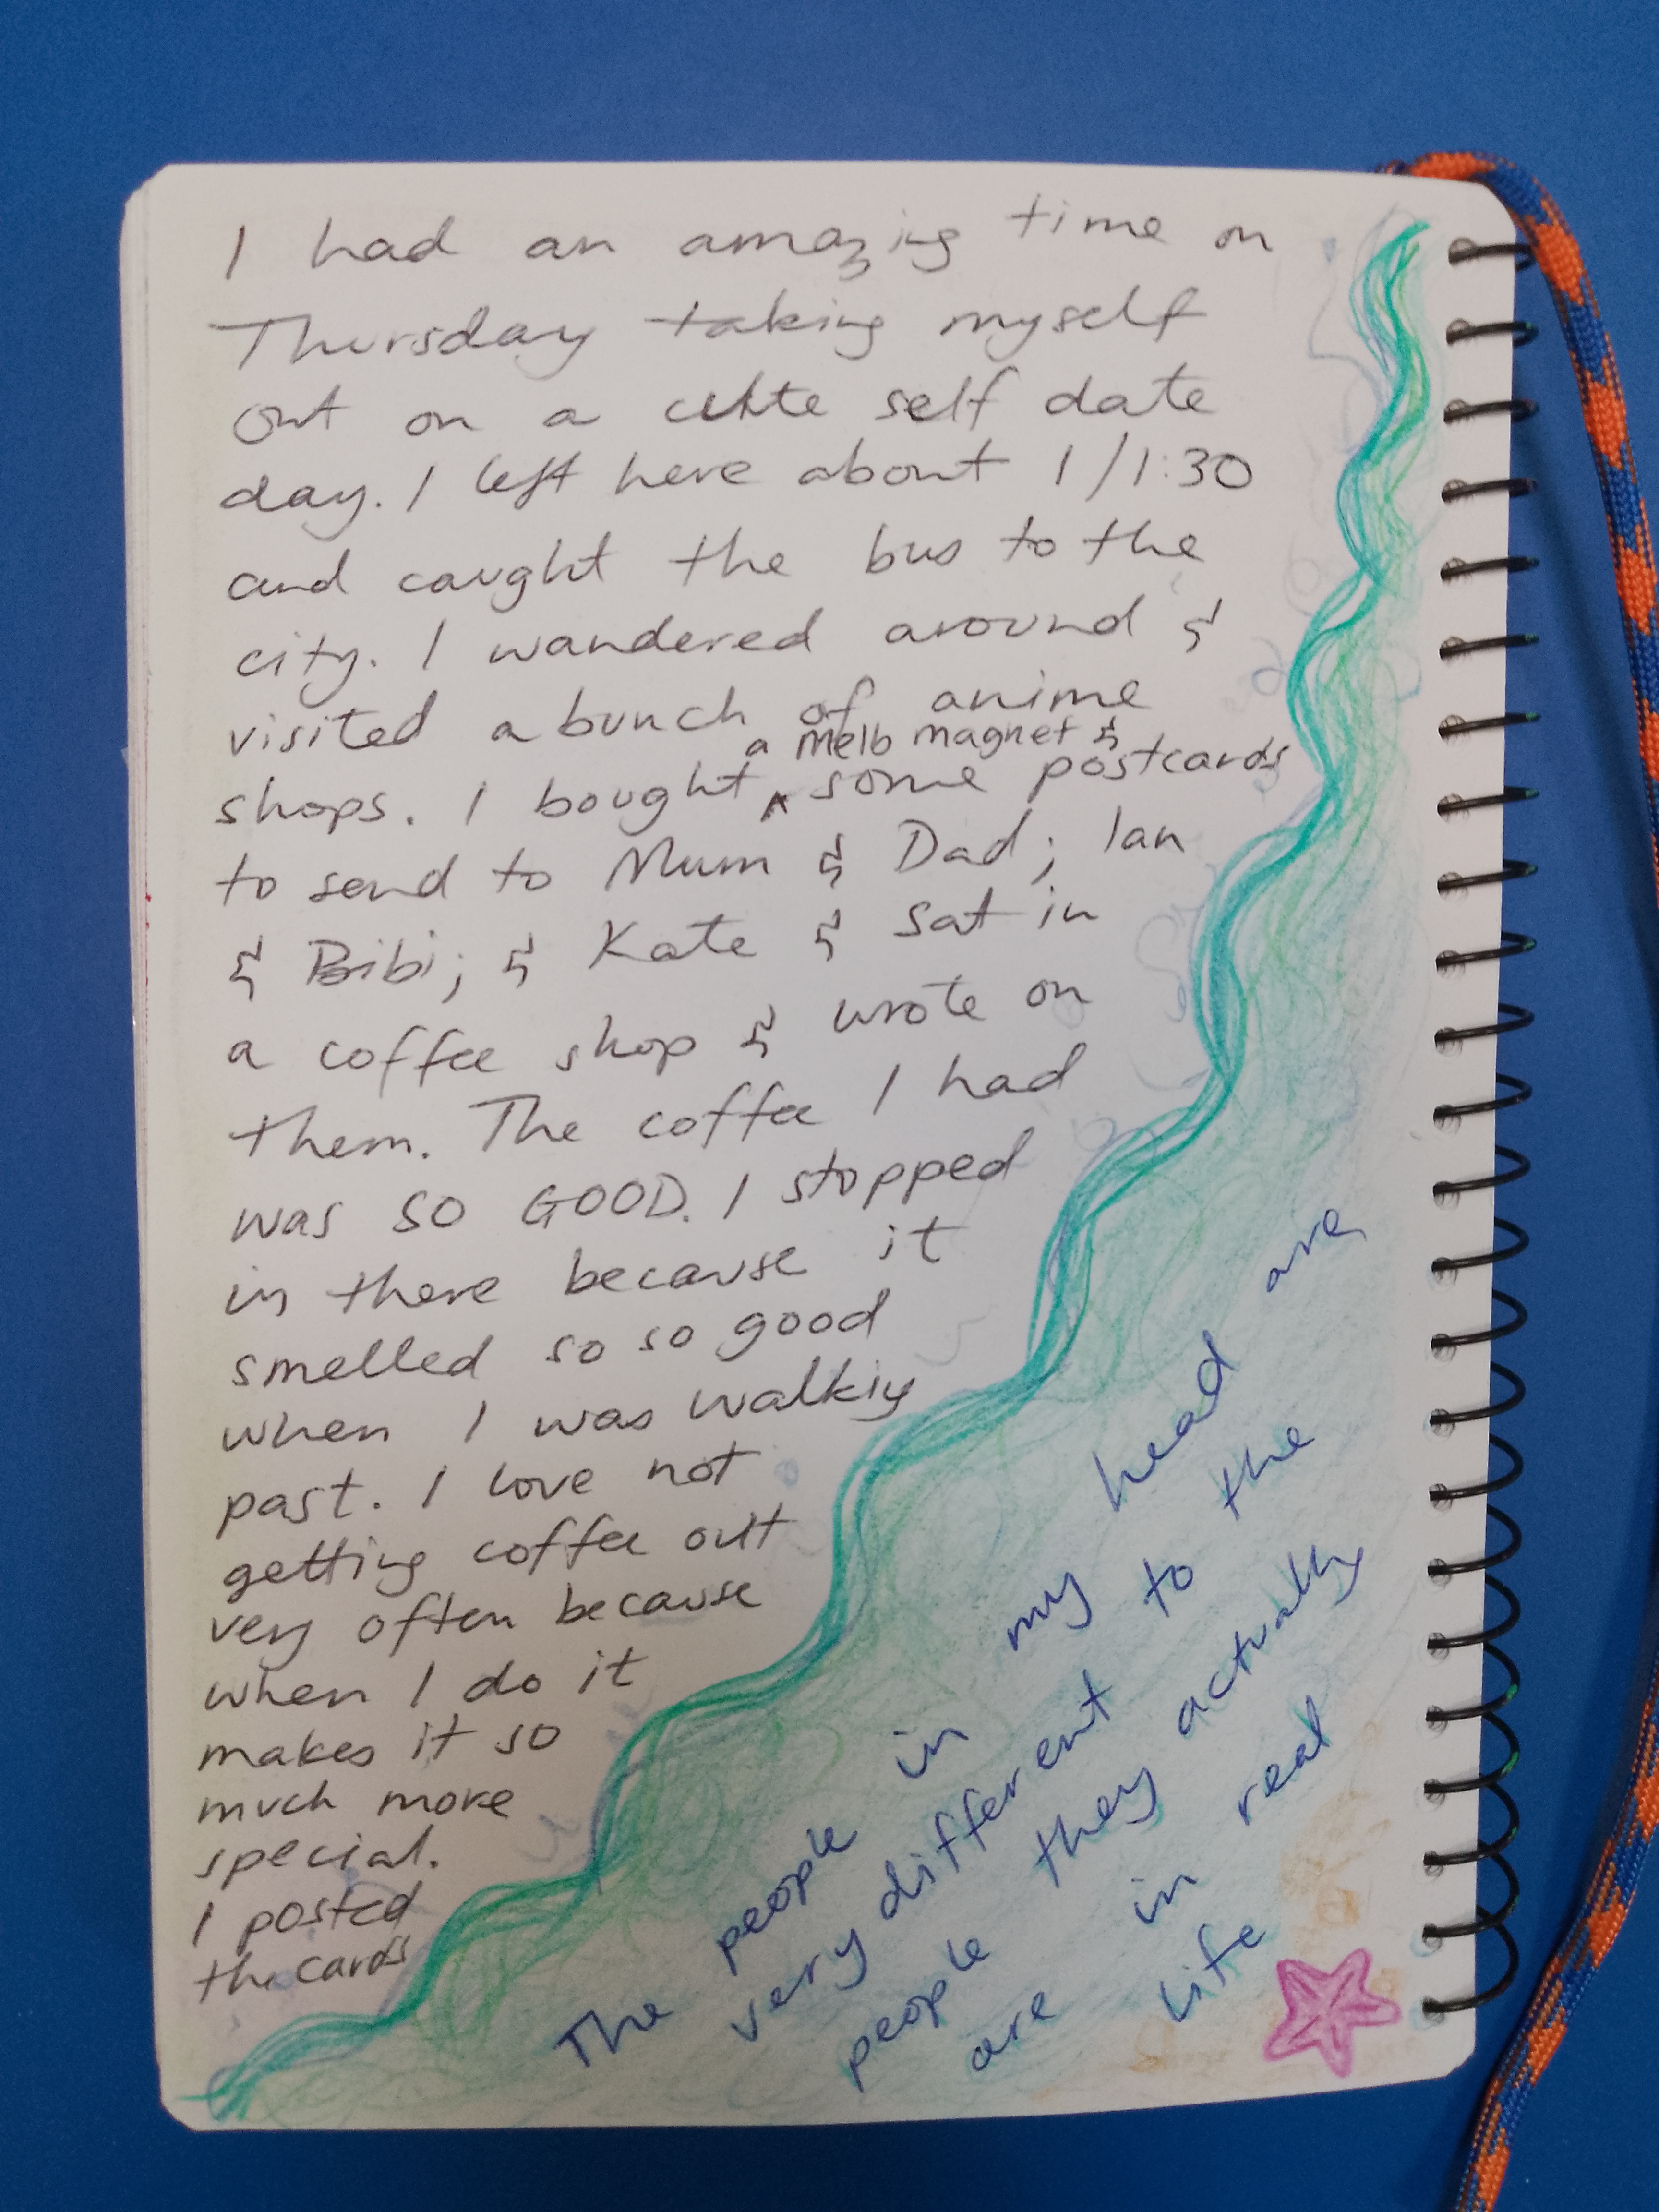 I had an amazing time on
Thursday taking myself
out on a cute self date
day. I left here about 1/1:30
and caught the bus to the
city. I wandered around &
visited a bunch of anime
a melb magnet &
shops. I bought ^ some postcards
to send to Mum & Dad; Ian
& Bibi; & Kate & sat in
a coffee shop & wrote on
them. The coffee I had
was SO GOOD. I stopped
in there because it
smelled so so good
when I was walking
past. I love not
getting coffee out
very often because
when I do it
makes it so
much more
special.
I posted
the cards
The people in my head are
very different to the
people they actually
are in real
life